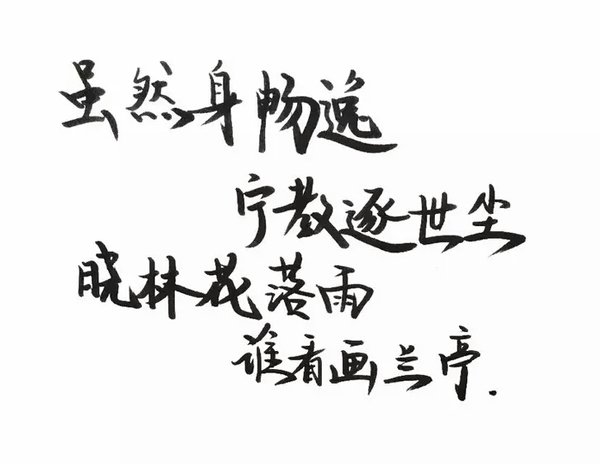 虽然身畅逸
宁教逐世尘
晓林花落雨
谁看画兰亭.